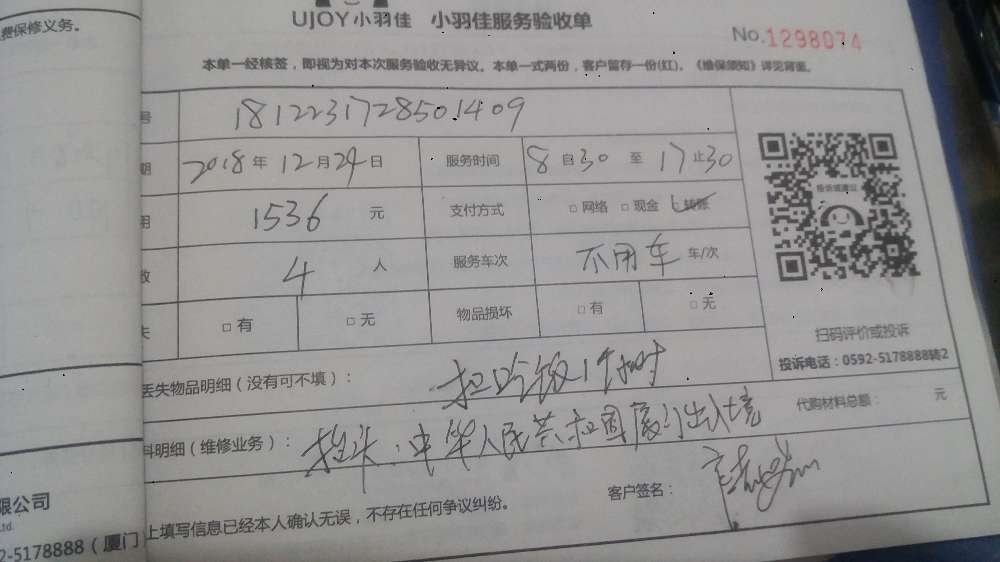 费保修义务。
UJOY小羽佳 小羽佳服务验收单
No.1298074
本单一经核签，即视为对本次服务验收无异议。本单一式两份，客户留存一份(红)，《维保须知》详见背面。
号 1812231728501409
期 2018年12月24日 服务时间 8自30至17止30
用 1536元 支付方式 □网络 □现金 转账
数 4人 服务车次 不用车 车/次
失 □有 □无 物品损坏 □有 □无
投诉或建议
扫码评价或投诉
投诉电话：0592-5178888转2
丢失物品明细（没有可不填）： 扣吃饭1个小时
料明细（维修业务）： 抬头：中华人民共和国厦门出入境 代购材料总额： 元
客户签名：
上填写信息已经本人确认无误，不存在任何争议纠纷。
限公司
Ltd.
2-5178888（厦门